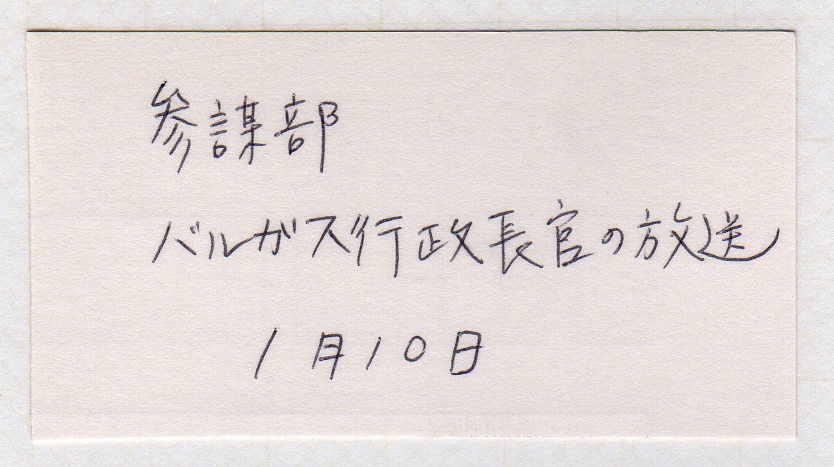 参謀部
バルガス行政長官の放送
1月10日